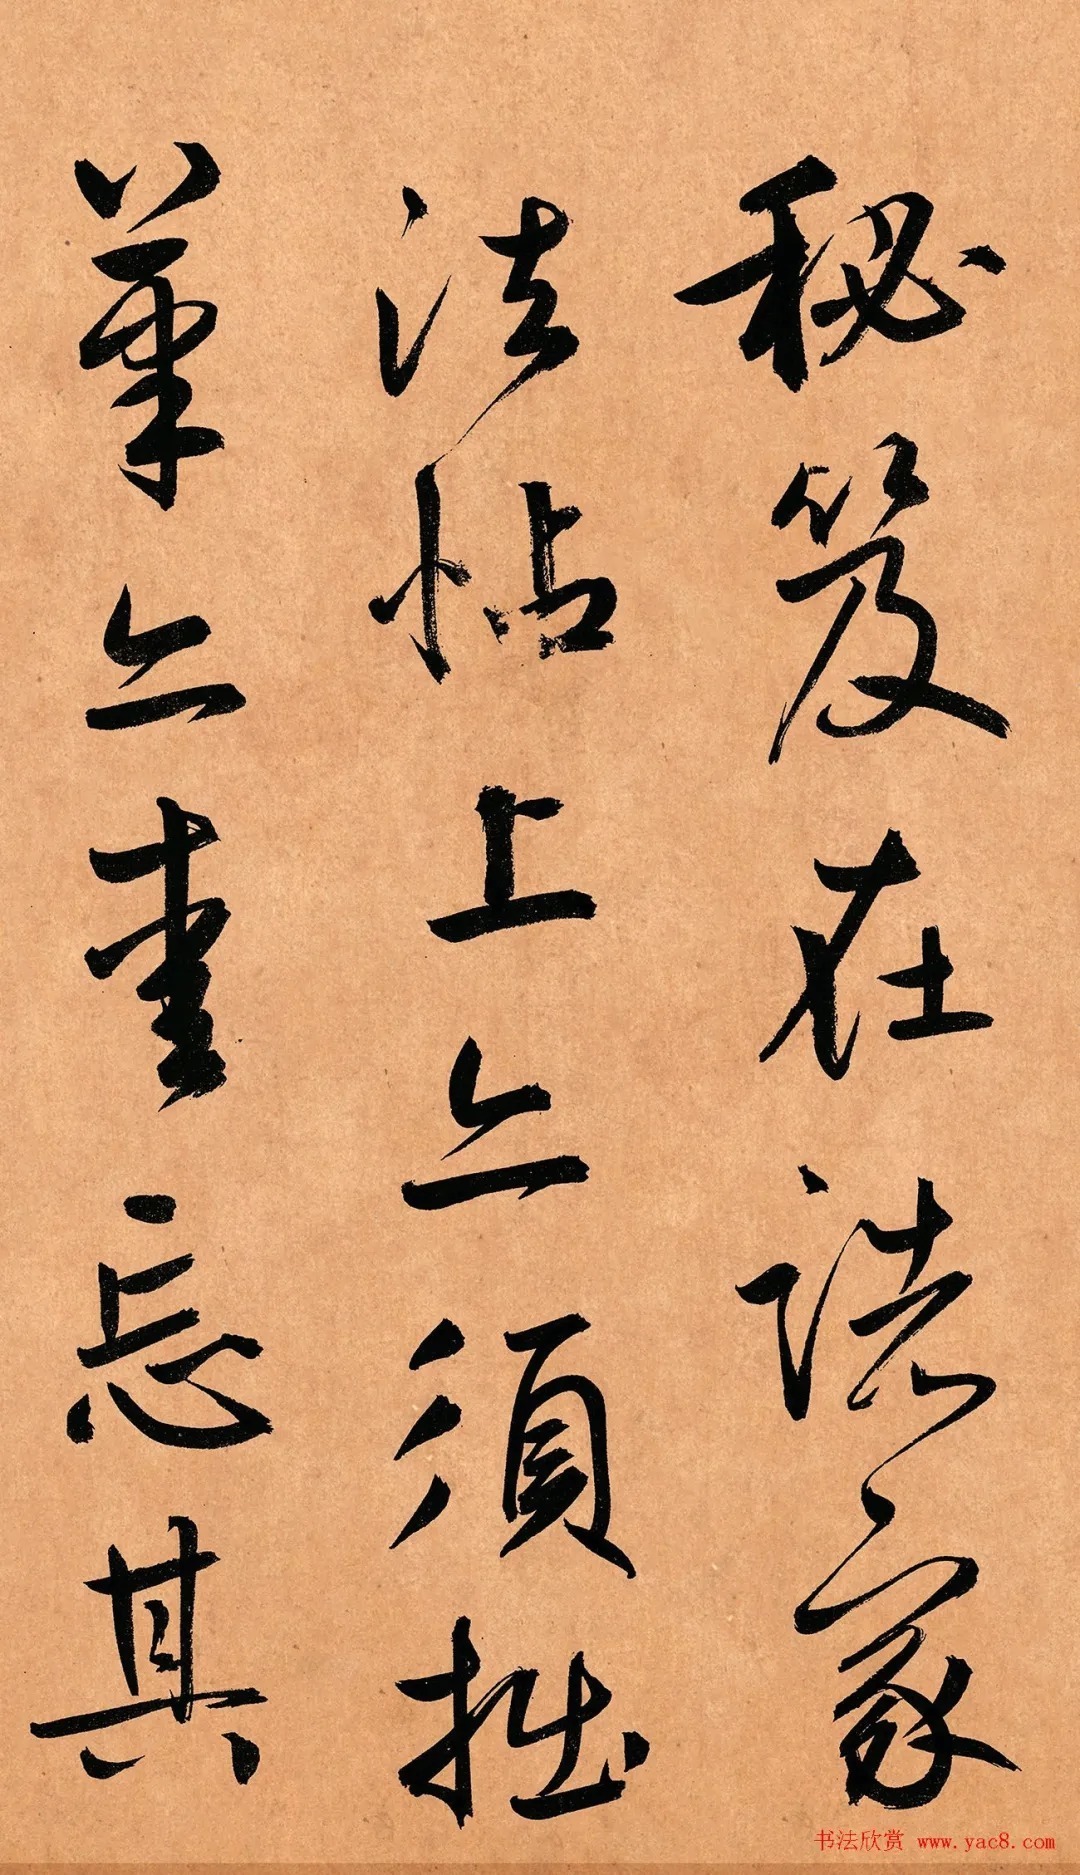 秘笈在诸家
法帖上亦須拙
筆亦畫忘其
书法欣赏 www.yac8.com